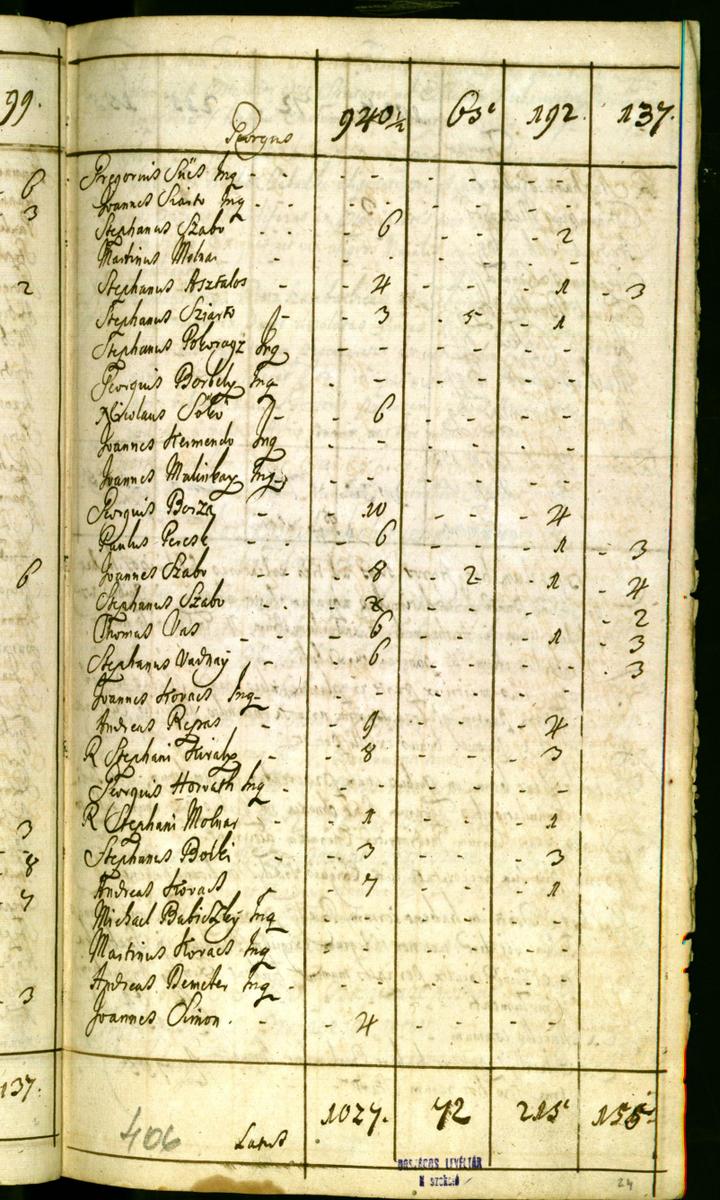 99.
6
3
2
6
3
8
7
3
137.
Peorgus 940½ 65 192 137.
Gregorius Süës Inq - - - - - -
Joannes Siarto Inq - - - - - -
Stephanus Szabo - - 6 - - - 2
Martinus Molnar - - - - -
Stephanus Asztalos - - 4 - - - 1 - 3
Stephanus Sziarto - - 3 - 5 - 1
Stephanus Inq - - - - - -
Georgius Borbely Inq - - - - - -
Nicolaus - - 6 - - - -
Joannes Inq - - - - - -
Joannes Inq - - - - - -
Georgius Borza - - 10 - - - 4
Paulus - - 6 - - - 1 - 3
Joannes Szabo - - 8 - 2 - 1 - 4
Stephanus Szabo - - - - - - 2
Thomas Vas - - 6 - - - 1 - 3
Stephanus Vadnay - - 6 - - - - - 3
Joannes Kovacs Inq - - - - - -
Andreas Répas - - 9 - - - 4
R Stephani Kiraly - 8 - - - 3
Georgius Horvath Inq - - - - - -
R Stephani Molnar - - 1 - - - 1
Stephanus Botki - - 3 - - - 3
Andreas Kovacs - - 7 - - - 1
Michael Babiczky Inq - - - - - -
Martinus Kovacs Inq - - - - - -
Andreas Demeter Inq - - - - - -
Joannes Simon - - 4 - - - -
406 Latus 1027. 72 215 155
ORSZÁGOS LEVÉLTÁR
N szekció
24